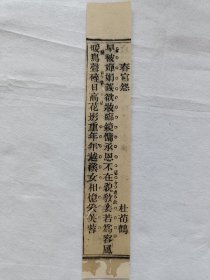 春宮怨 杜荀鶴
早被嬋娟誤欲妝臨鏡慵承恩不在貌教妾若爲容風
暖鳥聲碎日高花影重年年越溪女相憶采芙蓉